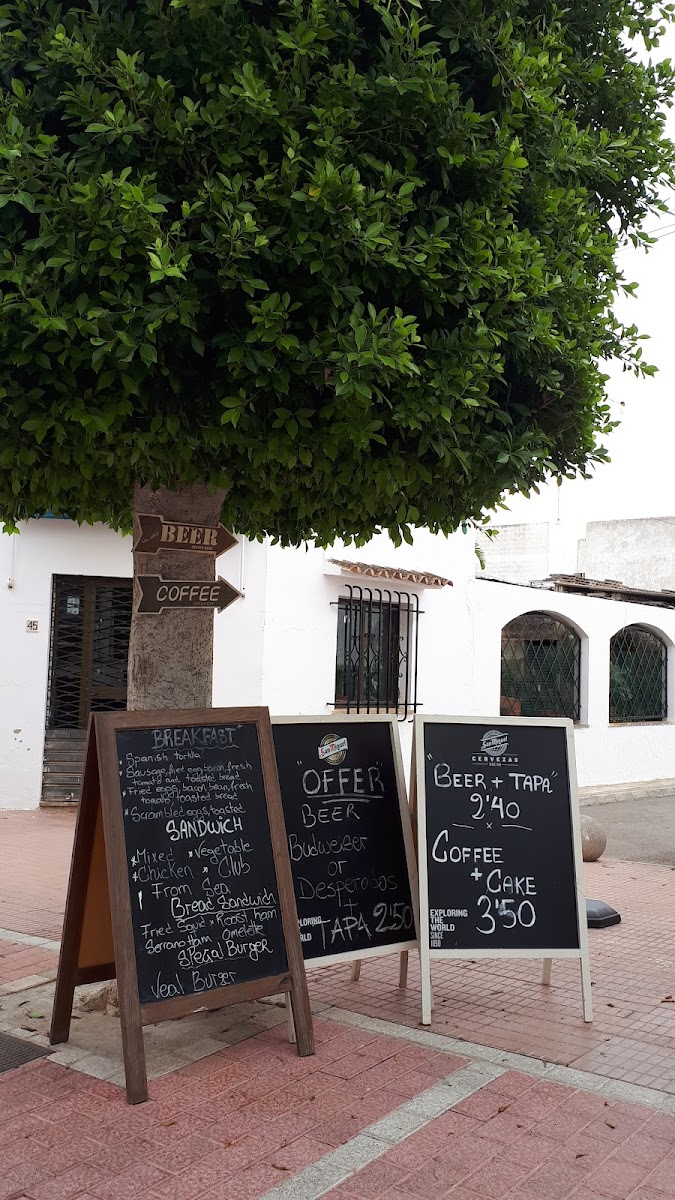 BEER
COFFEE
45
"BREAKFAST"
Spanish tortilla
* Sausage, fried egg, bacon, fresh
tomato and toasted bread
* Fried eggs, bacon, bean, fresh
tomato, toasted bread
* Scrambled eggs, toasted
SANDWICH
* Mixed * Vegetable
* Chicken * Club
From Sea
Bread Sandwich
Fried Squid * Roast ham
Serrano Ham Omelette
SPECIAL BURGER
Veal Burger
San Miguel
"OFFER"
BEER
Budweiser
or
Desperados
+
TAPA 2'50
San Miguel
CERVEZAS
"BEER + TAPA"
2'40
COFFEE
+ CAKE
3'50
EXPLORING
THE
WORLD
SINCE
1890